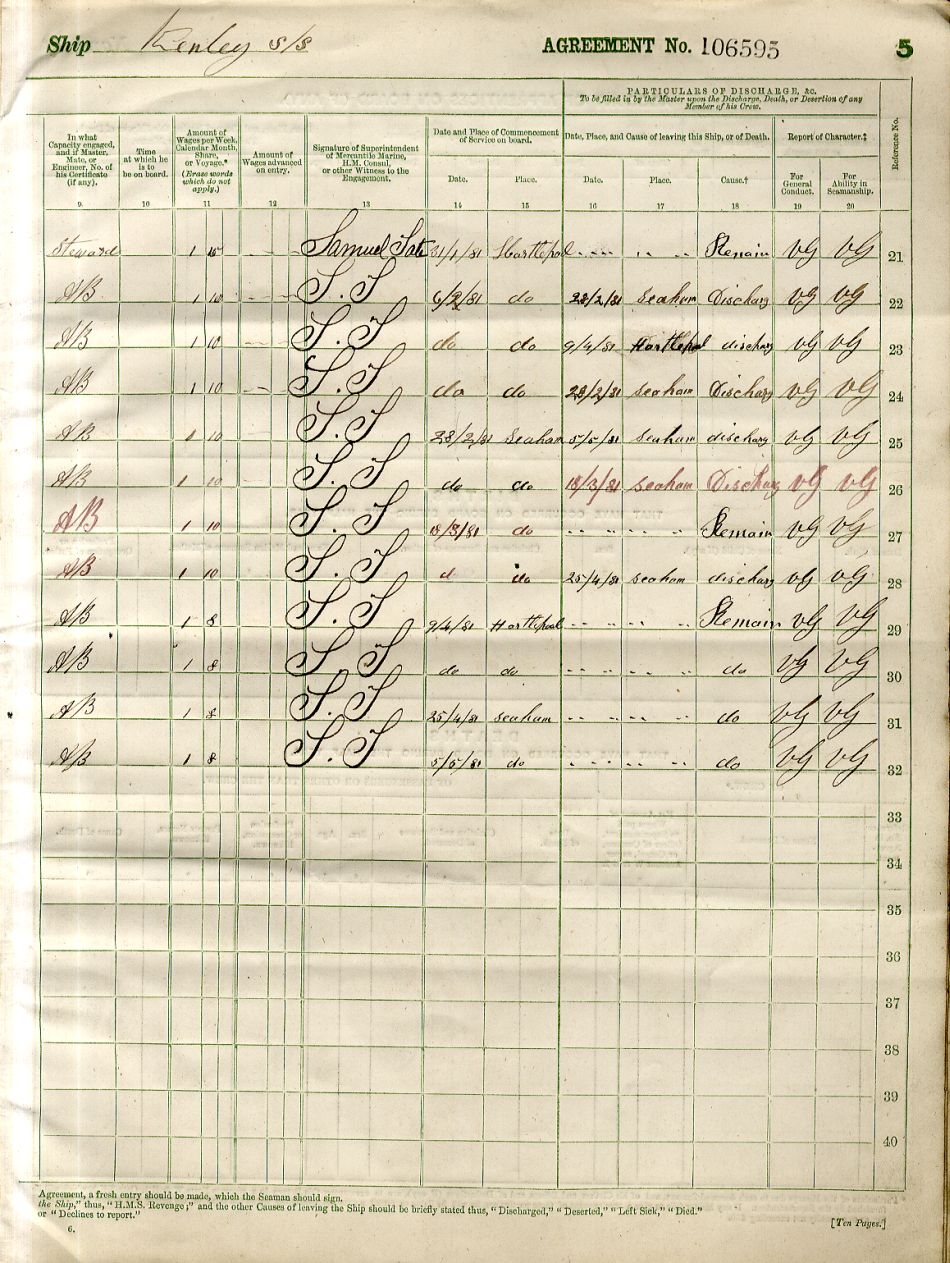 Ship Kenley s/s AGREEMENT No. 106595 5
PARTICULARS OF DISCHARGE, &c.
To be filled in by the Master upon the Discharge, Death, or Desertion of any Member of his Crew.
In what Capacity engaged, and if Master, Mate, or Engineer, No. of his Certificate (if any).
Time at which he is to be on board.
Amount of Wages per Week, Calendar Month, Share, or Voyage.* (Erase words which do not apply.)
Amount of Wages advanced on entry.
Signature of Superintendent of Mercantile Marine, H.M. Consul, or other Witness to the Engagement.
Date and Place of Commencement of Service on board.
Date, Place, and Cause of leaving this Ship, or of Death.
Report of Character.‡
Reference No.
Date. Place. Date. Place. Cause.† For General Conduct. For Ability in Seamanship.
9. 10 11 12 13 14 15 16 17 18 19 20
Steward 1 15 Samuel Tate 31/1/81 Hartlepool Remain VG VG 21
AB 1 10 S. T 6/2/81 do 28/2/81 Seaham Discharg VG VG 22
AB 1 10 S. T do do 9/4/81 Hartlepool discharg VG VG 23
AB 1 10 S. T do do 28/2/81 Seaham Discharg VG VG 24
AB 1 10 S. T 28/2/81 Seaham 5/5/81 Seaham discharg VG VG 25
AB 1 10 S. T do do 18/3/81 Seaham Discharg VG VG 26
AB 1 10 S. T 18/3/81 do Remain VG VG 27
AB 1 10 S. T d do 25/4/81 Seaham discharg VG VG 28
AB 1 8 S. T 9/4/81 Hartlepool Remain VG VG 29
AB 1 8 S. T do do do VG VG 30
AB 1 8 S. T 25/4/81 Seaham do VG VG 31
AB 1 8 S. T 5/5/81 do do VG VG 32
33
34
35
36
37
38
39
40
Agreement, a fresh entry should be made, which the Seaman should sign.
the Ship," thus, "H.M.S. Revenge;" and the other Causes of leaving the Ship should be briefly stated thus, "Discharged," "Deserted," "Left Sick," "Died."
or "Declines to report."
6. [Ten Pages.]